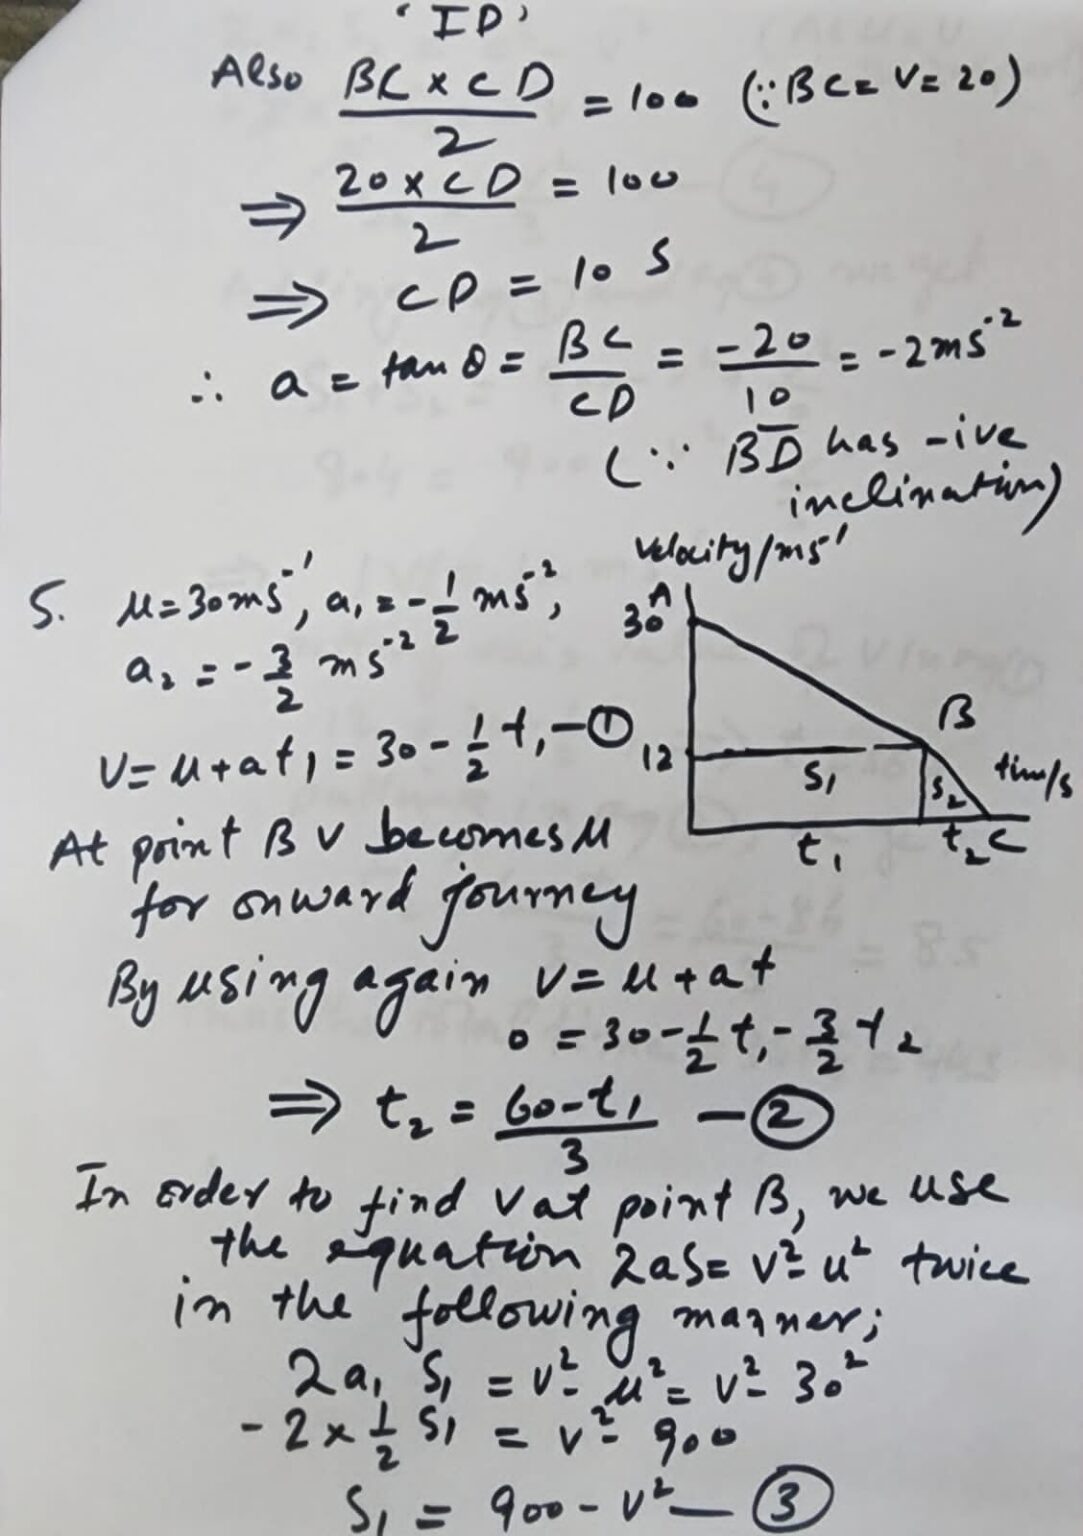 'ID'
Also BC x CD / 2 = 100 (∵ BC = V = 20)
⇒ 20 x CD / 2 = 100
⇒ CD = 10 S
∴ a = tan θ = BC / CD = -20 / 10 = -2 ms⁻²
(∵ BD has -ive
inclination)
Velocity/ms⁻¹
5. u = 30 ms⁻¹, a₁ = -1/2 ms⁻²,
a₂ = -3/2 ms⁻²
V = u + at₁ = 30 - 1/2 t₁ - ①
A
30
B
12
S₁
S₂
time/s
t₁
t₂
C
At point B V becomes u
for onward journey
By using again V = u + at
0 = 30 - 1/2 t₁ - 3/2 t₂
⇒ t₂ = 60 - t₁ / 3 - ②
In order to find V at point B, we use
the equation 2aS = V² - u² twice
in the following manner;
2a₁ S₁ = V² - u² = V² - 30²
-2 x 1/2 S₁ = V² - 900
S₁ = 900 - V² - ③